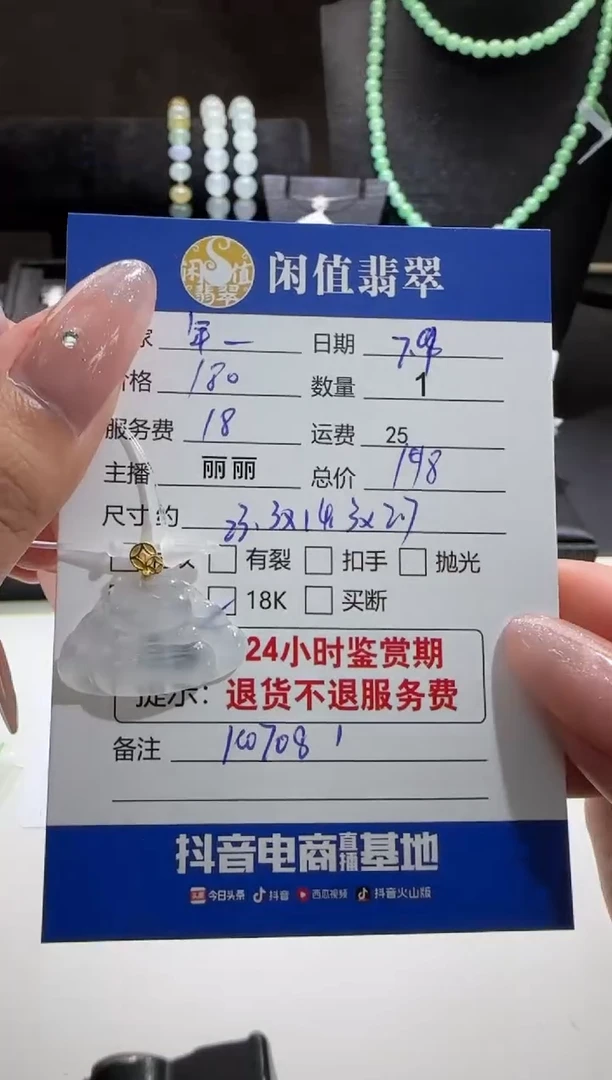 闲值翡翠
闲值翡翠
家 年一 日期
价格 180 数量 1
服务费 18 运费 25
主播 丽丽 总价 198
尺寸约 23.3x14.3x2.7
有裂 扣手 抛光
18K 买断
24小时鉴赏期
提示：退货不退服务费
备注
抖音电商直播基地
头条 今日头条 抖音 西瓜视频 抖音火山版